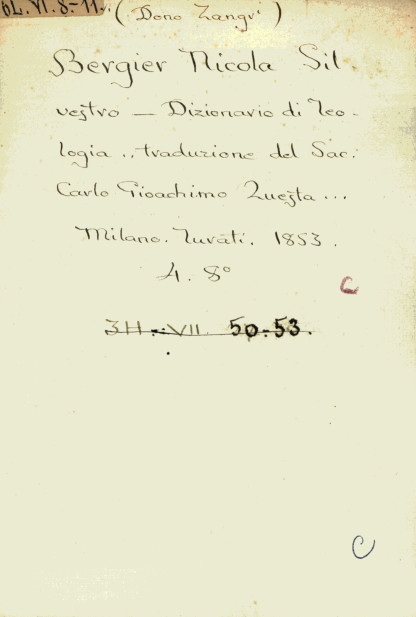 6L. VI. 8-11. (Dono Zangri)
Bergier Nicola Sil-
vestro — Dizionario di Teo-
logia ., traduzione del Sac.
Carlo Gioachimo Questa ...
Milano. Turati. 1853.
4. 8°
C
3H.-VII. 50-53.
C